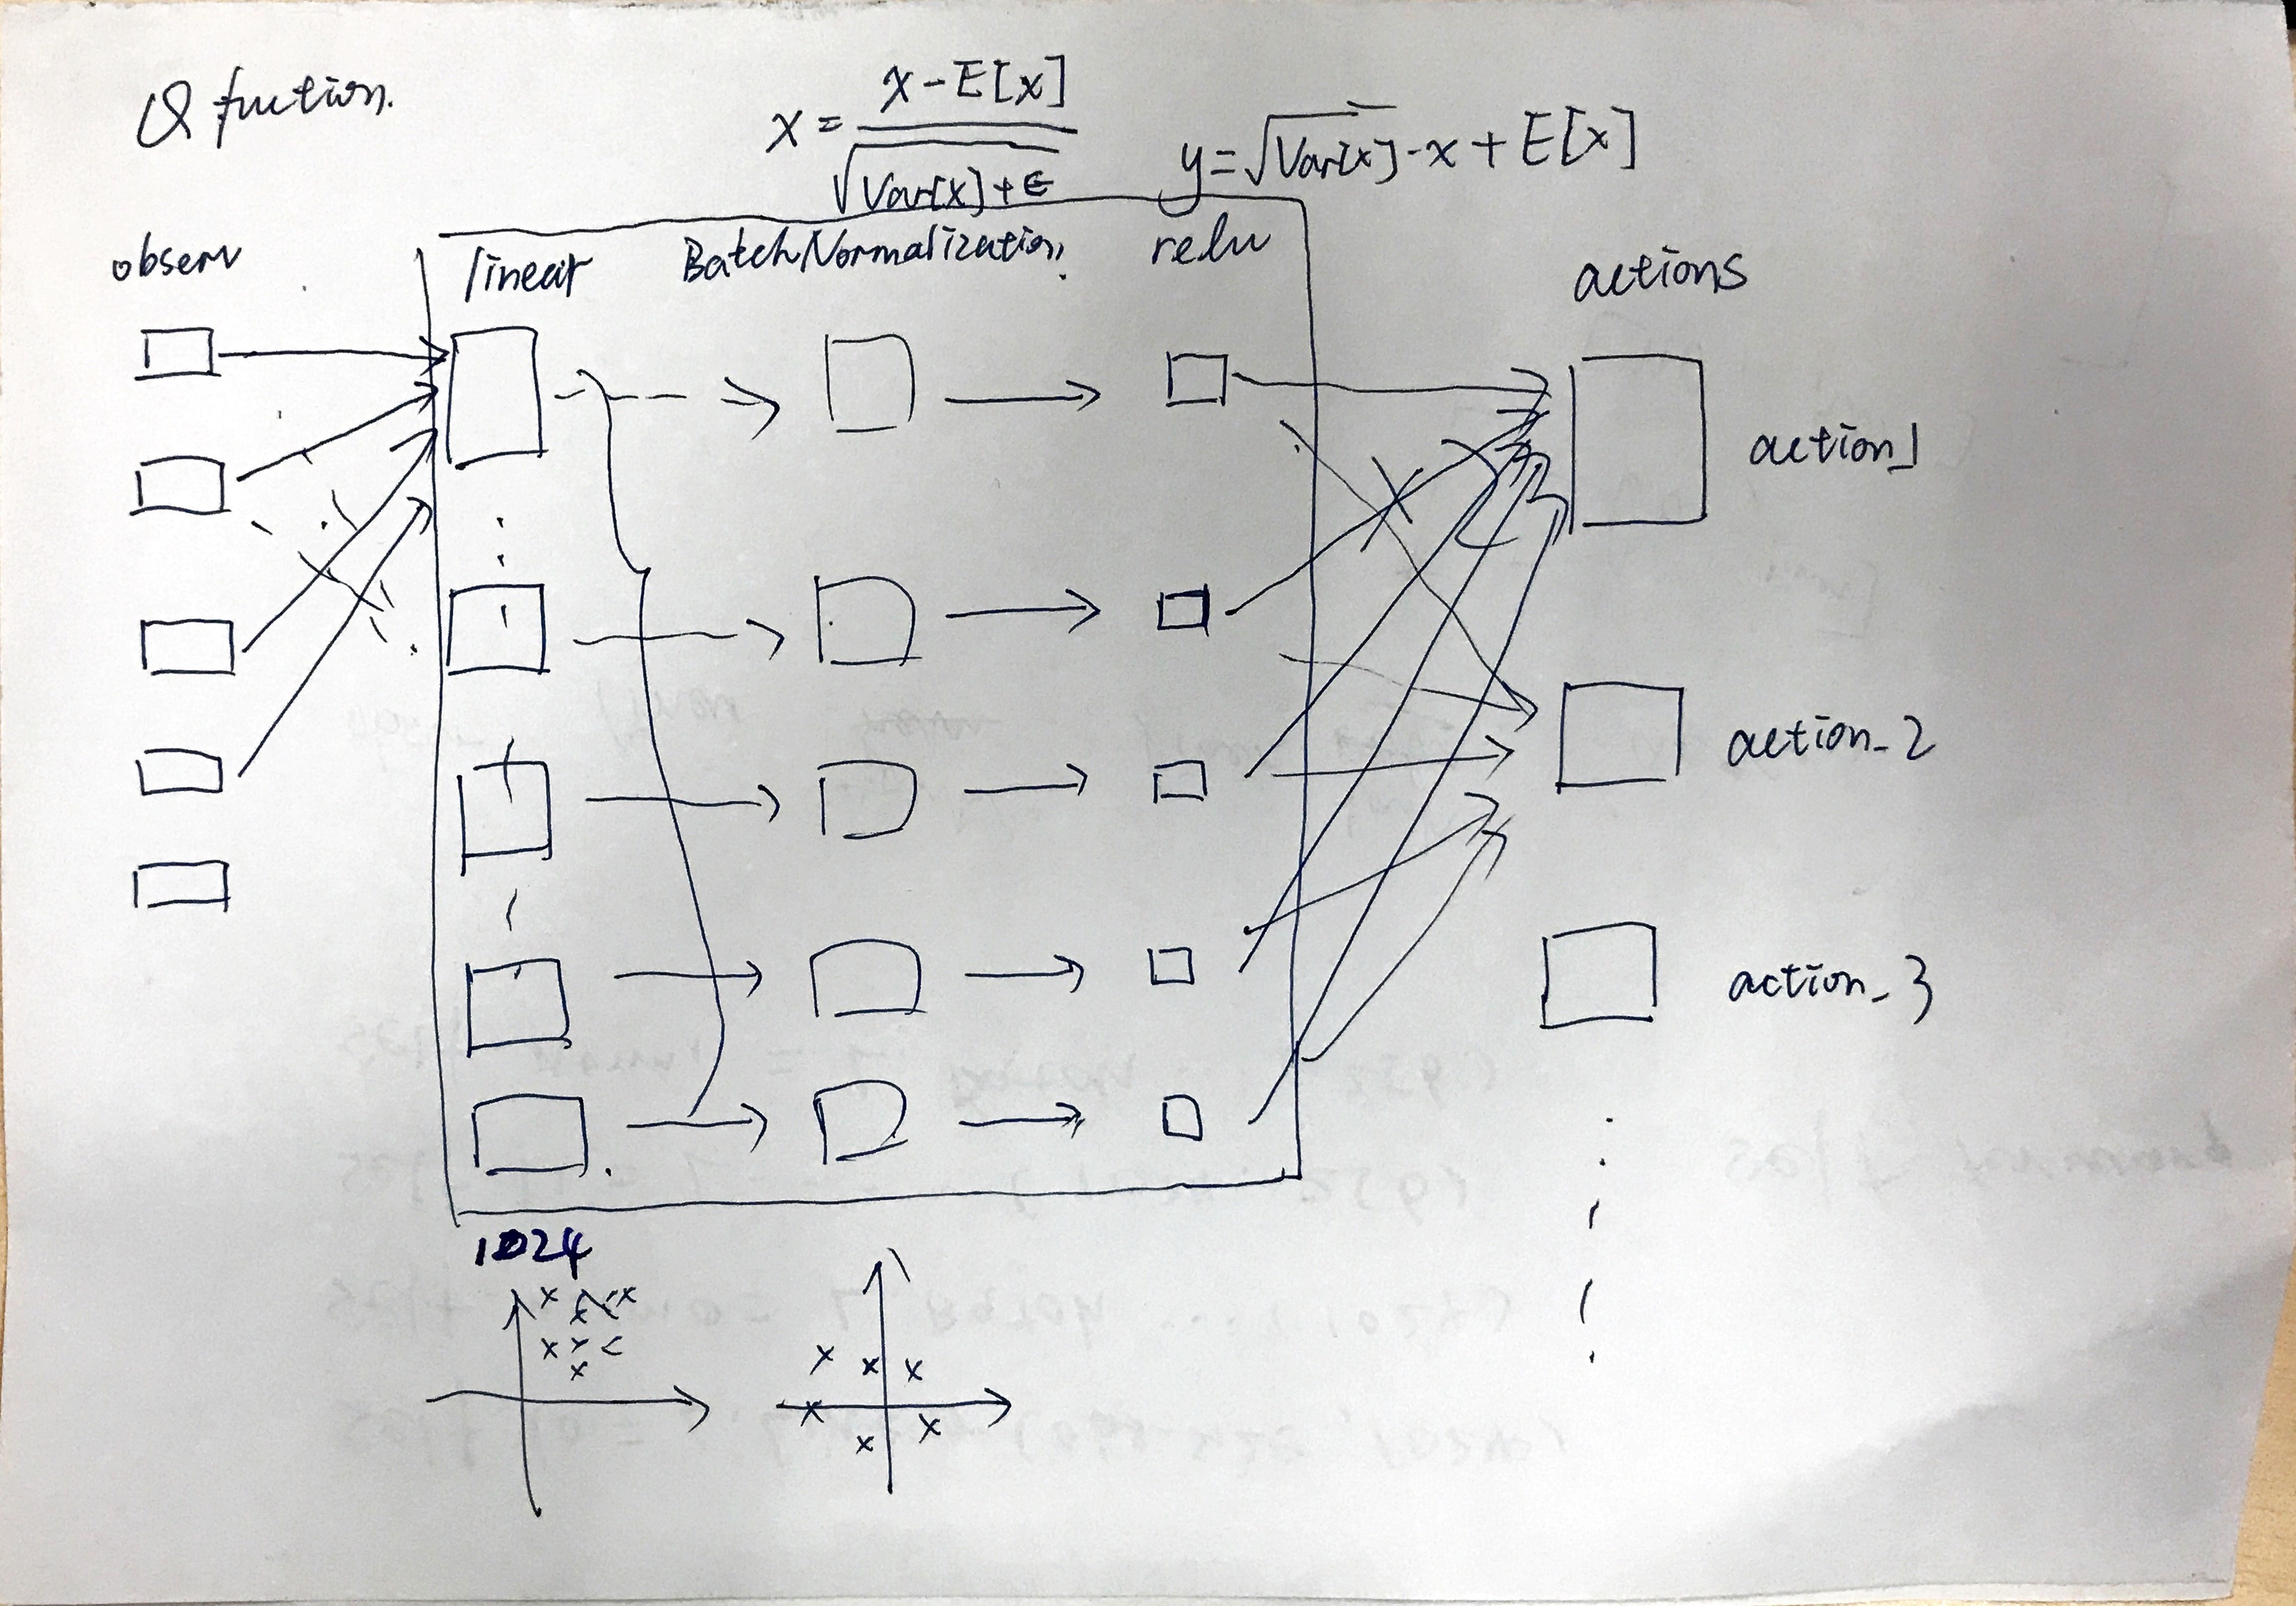 Q fuction.
x = (x - E[x]) / √(Var[x] + ϵ)
y = √Var[x] · x + E[x]
observ
linear
BatchNormalization
relu
actions
action_1
action_2
action_3
1024